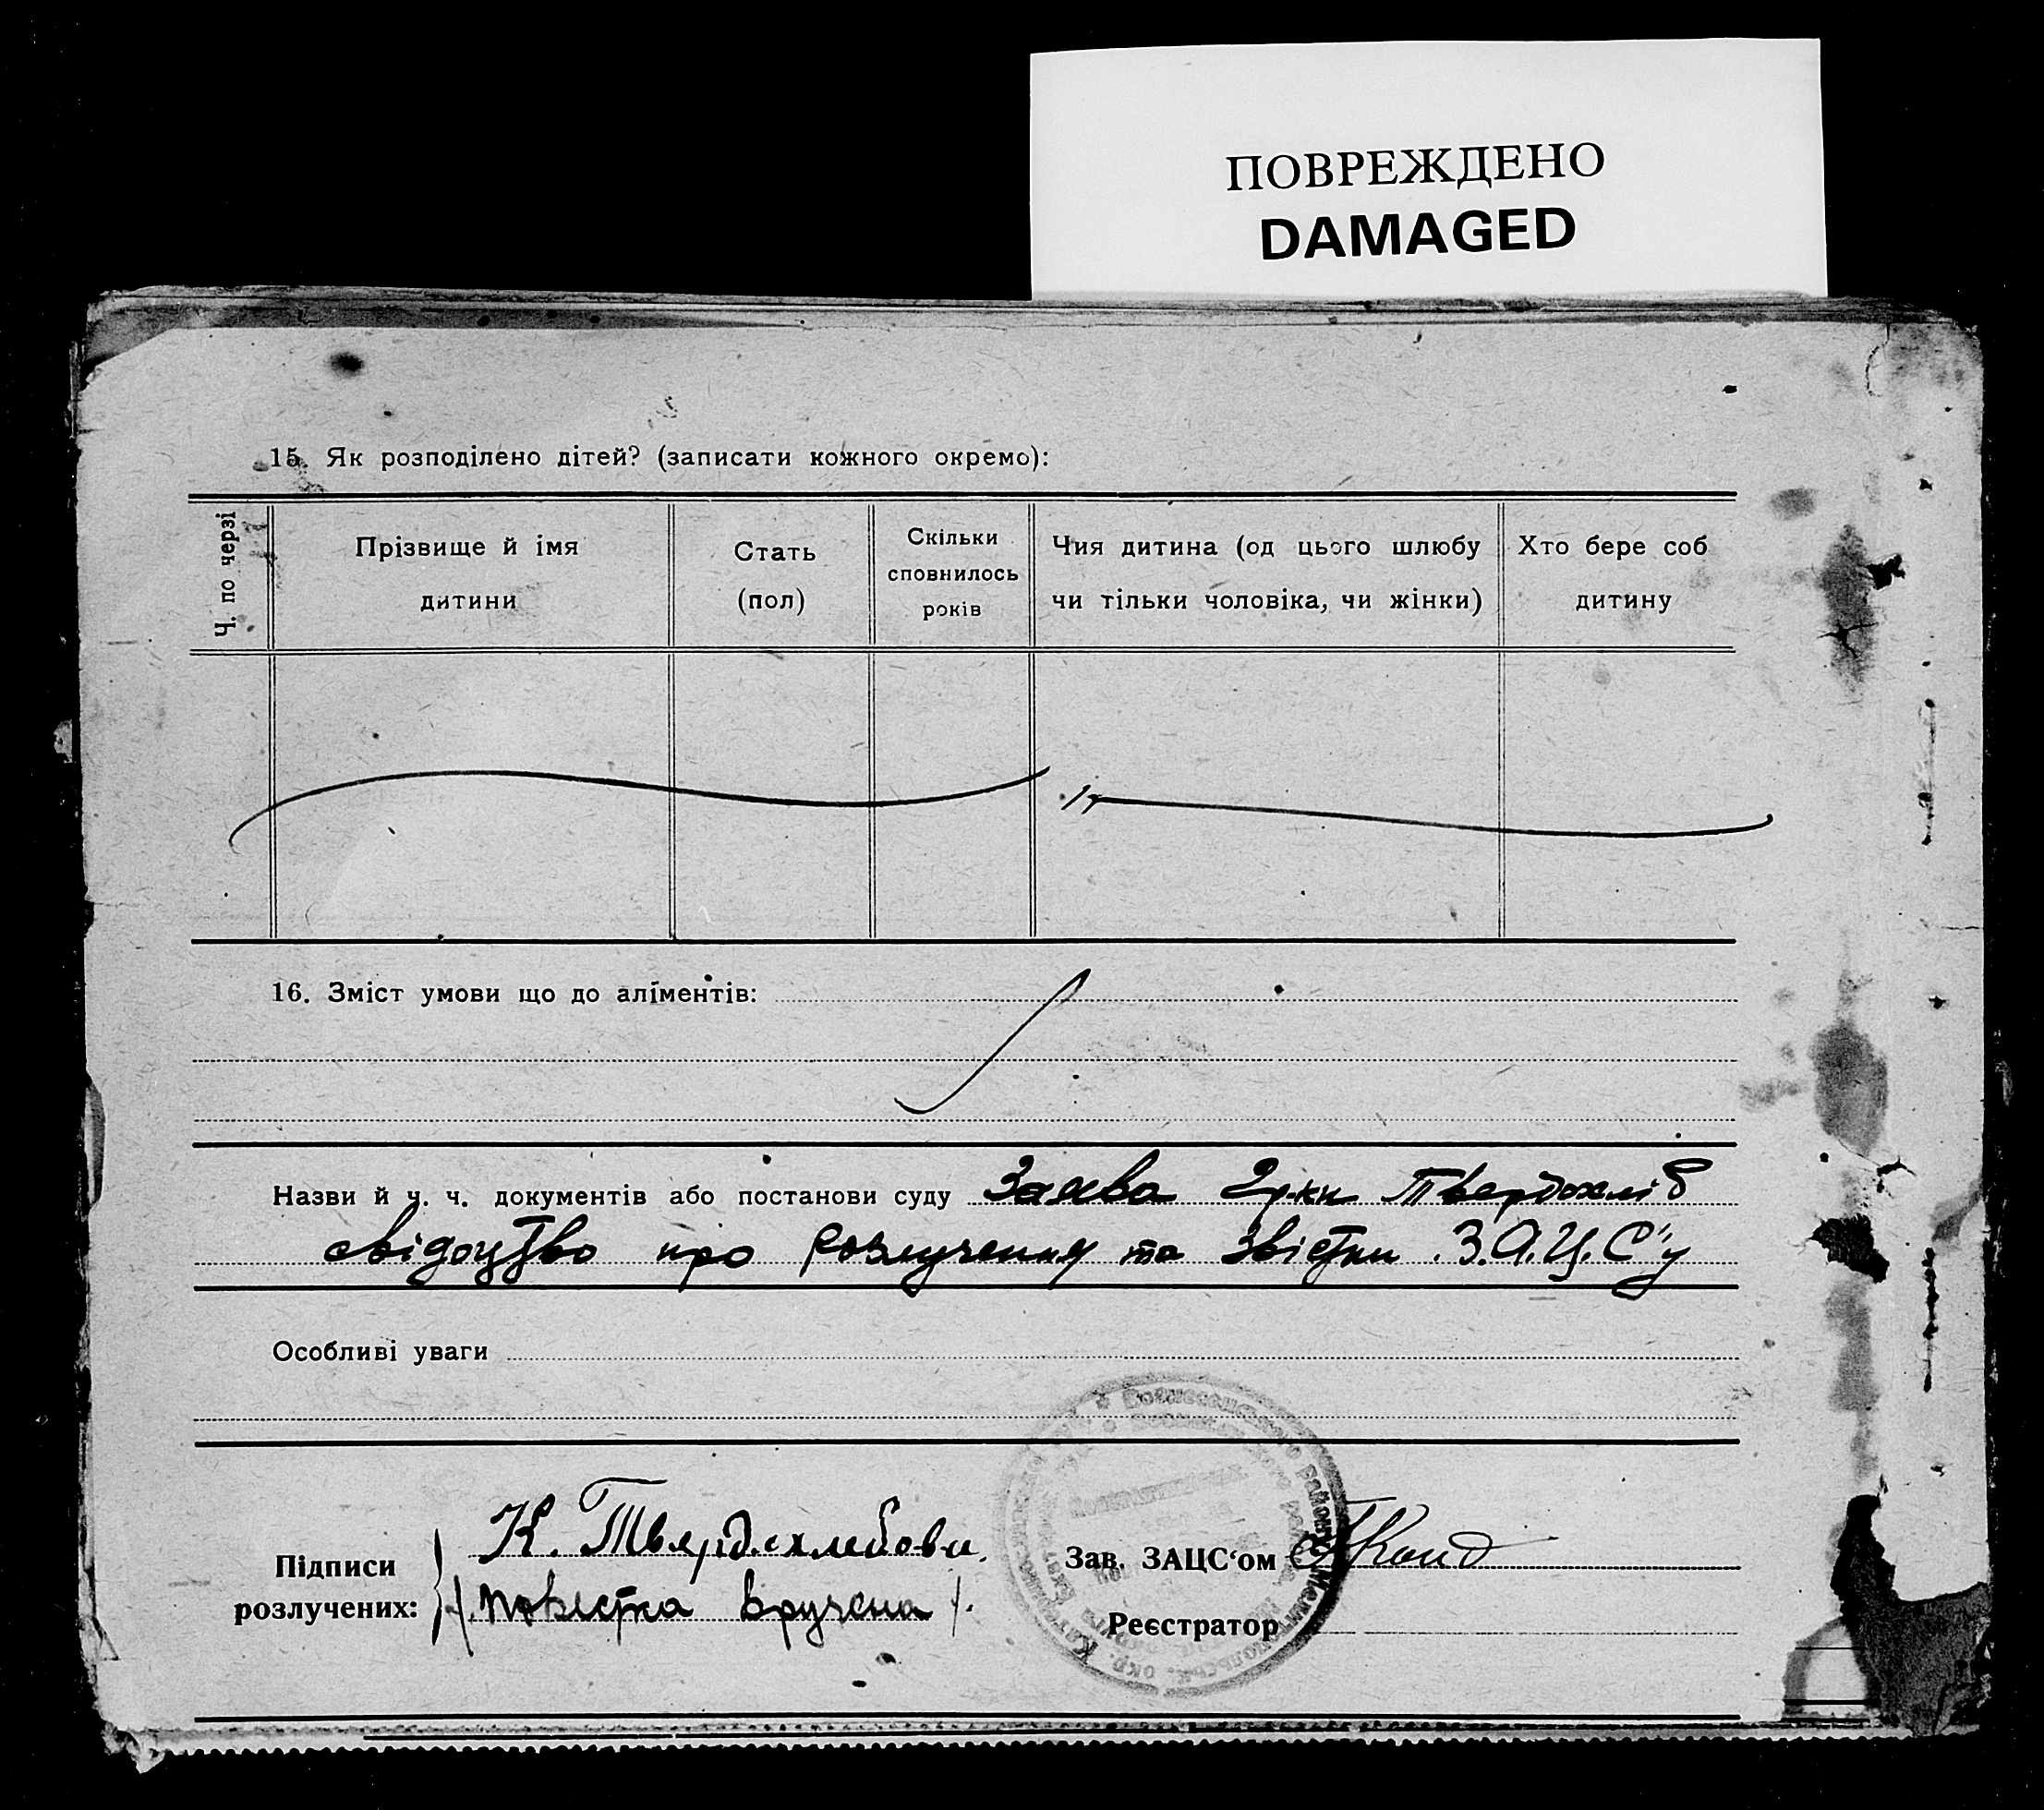 ПОВРЕЖДЕНО
DAMAGED
15. Як розподілено дітей? (записати кожного окремо):
Ч. по черзі
Прізвище й імя
дитини
Стать
(пол)
Скільки
сповнилось
років
Чия дитина (од цього шлюбу
чи тільки чоловіка, чи жінки)
Хто бере соб
дитину
16. Зміст умови що до аліментів:
Назви й ч. ч. документів або постанови суду Заява Гр-ки Твердохліб
свідоцтво про розлучення та звістки З.А.Ц.С'у
Особливі уваги
Підписи
розлучених:
К. Твердохлебова
/повестка вручена/.
Зав. ЗАЦС‘ом
Реєстратор
Вознесенського району Мелітопольськ. окр.